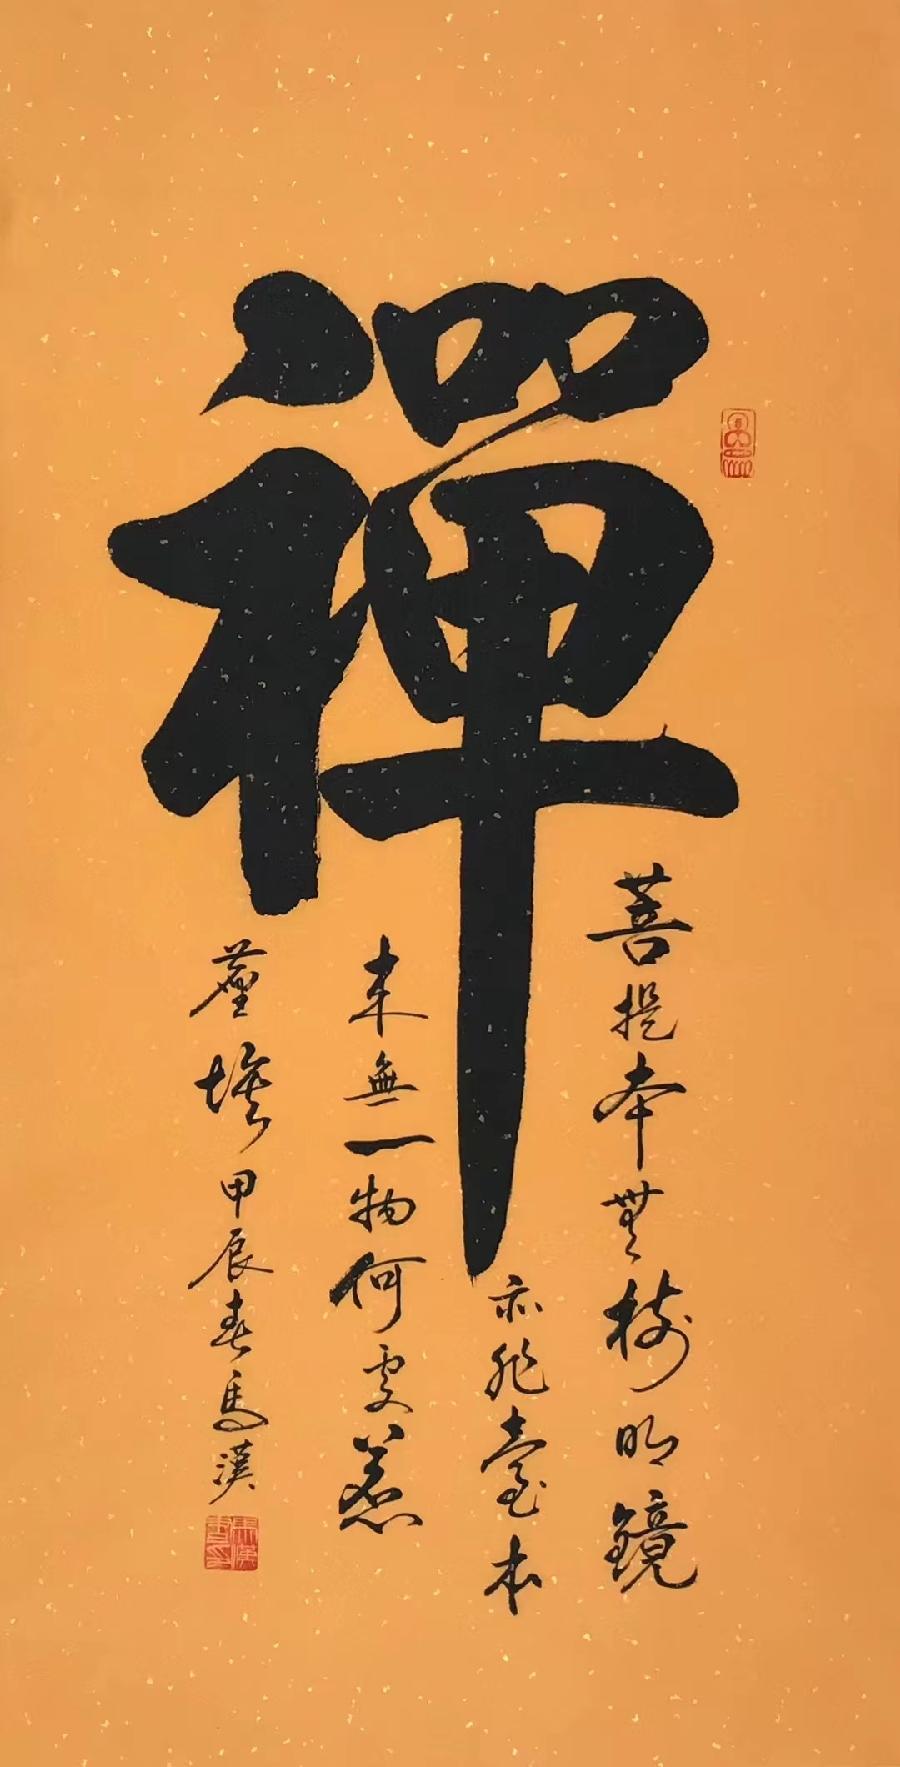 禪
菩提本無樹明鏡
亦非臺本
来無一物何處惹
塵埃甲辰春馬漢